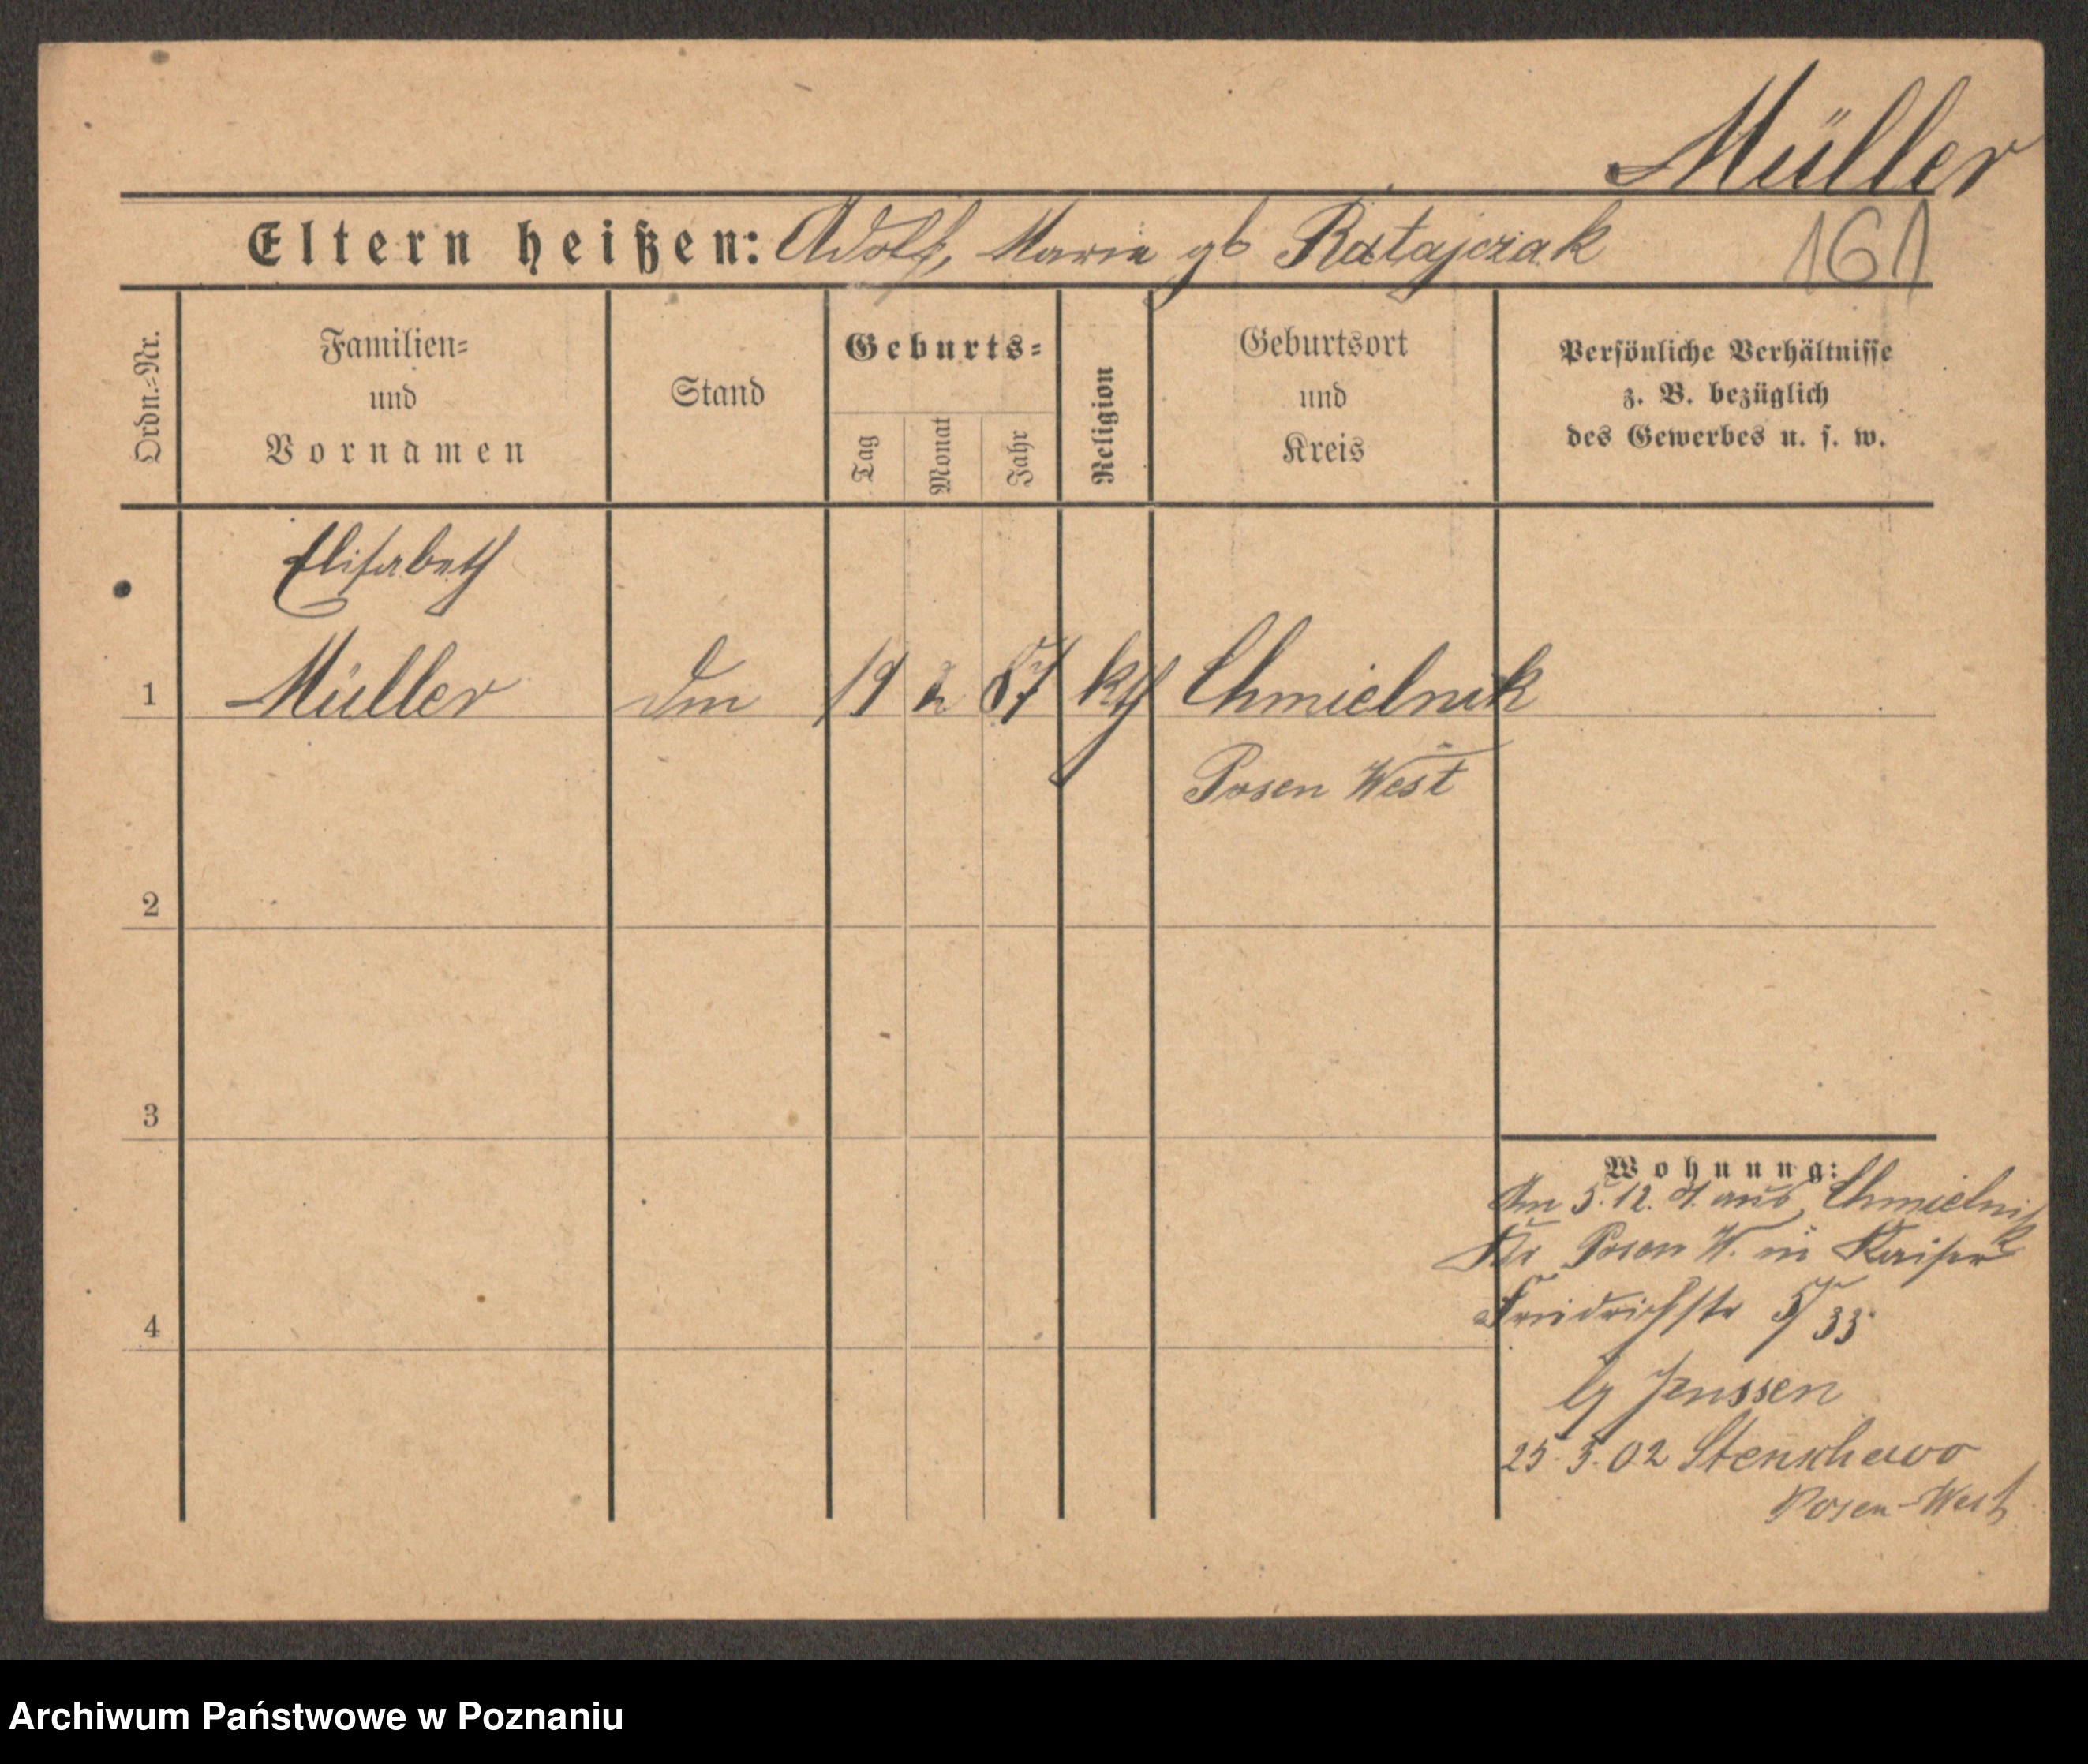 Müller
Eltern heißen: Adolf, Maria gb Ratajczak
161
Ordn.-Nr.
Familien-
und
Vornamen
Stand
Geburts-
Tag
Monat
Jahr
Religion
Geburtsort
und
Kreis
Persönliche Verhältnisse
z. B. bezüglich
des Gewerbes u. s. w.
Elisabeth
1 Müller 19 2 kth Chmielnik
Posen West
2
3
4
Wohnung:
5. 12. aus Chmielnik
Kr Posen W. in Kaiser
Friedrichstr 33
Jenssen
25. 3. 02 Stenschewo
Posen-West
Archiwum Państwowe w Poznaniu